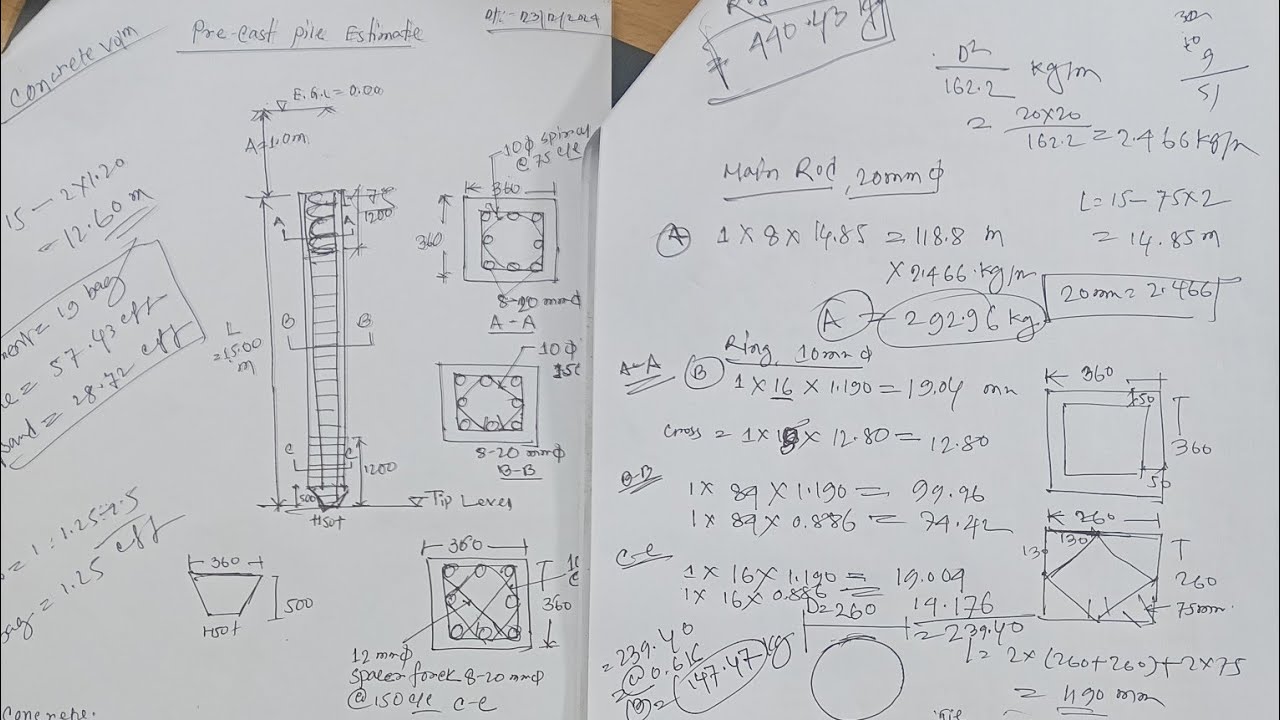 Concrete vqm
Pre-cast pile Estimate
Dt:- 23/12/2024
E.G.L = 0.00
A=1.0m
15 - 2x1.20
= 12.60 m
= 19 bag
= 57.43 cft
sand = 28.72 cft
= 1:1.25:2.5
bag = 1.25 cft
75
1200
A A
B B
L
=15.00
m
C C
1200
500
150
Tip Level
360
500
150
10φ spiral
@ 75 c/c
360
360
8-20 mmφ
A - A
10φ
150
8-20 mmφ
B-B
360
360
12 mmφ
spacer
8-20 mmφ
@ 150 c/c
c-c
Concrete.
Rod
= 440.43 kg
D²/162.2 kg/m
= 20x20/162.2 = 2.466 kg/m
9
51
Main Rod, 20mmφ
L = 15 - 75x2
= 14.85m
A 1 x 8 x 14.85 = 118.8 m
x 2.466 kg/m
A = 292.96 kg.
20mm = 2.466
Ring, 10mmφ
A-A B 1 x 16 x 1.190 = 19.04
Cross = 1 x x 12.80 = 12.80
B-B
1 x 84 x 1.190 = 99.96
1 x 84 x 0.886 = 74.42
C-C
1 x 16 x 1.190 = 19.004
1 x 16 x 0.886 = 14.176
= 239.40
D= 260
= 239.40
@ 0.616
= 147.47 kg
360
50
360
50
260
130
130
260
75mm
l = 2x(260+260)+2x75
= 1190 mm